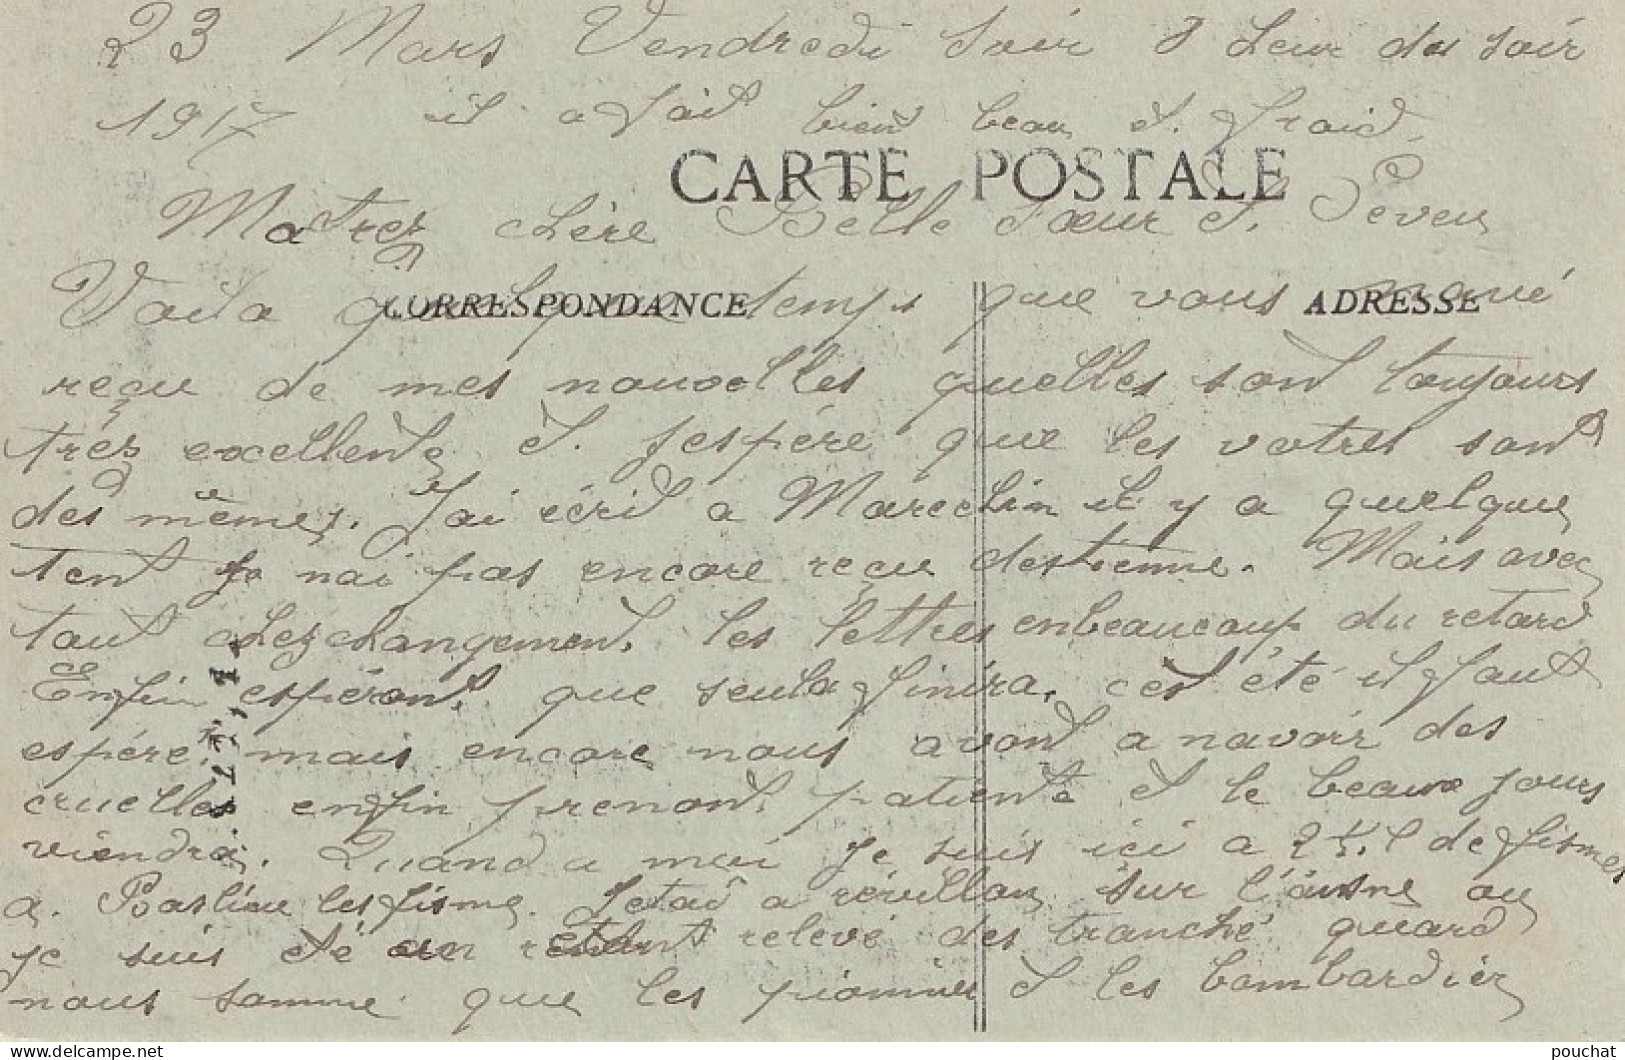 23 Mars Vendredi Soir 8 heur du soir
1917 il a fait bien beau et froid.
CARTE POSTALE
Ma trez chère Belle Sœur et Neveu
CORRESPONDANCE
ADRESSE
Voila quelque temps que vous
reçu de mes nouvelles quelles sont toujours
très excellente et jespére que les votres sont
des mêmes. J'ai écrit a Marechin il y a quelque
tent je nai pas encore reçu des tienne. Mais avec
tout chez changement. les lettres en beaucoup du retard
Enfin espéront. que seula finira. cet été il faut
espére. mais encore nous avont a navoir des
cruelles enfin prenont patiente et le beaux jours
viendra. Quand a moi je suis ici a 2 K. de fismes
a. Baslieu les fisme. Jetai a révillon sur l'aisne ou
je suis été en relevé des tranché quand
nous somme que les pionnier et les bombardier
pouchat